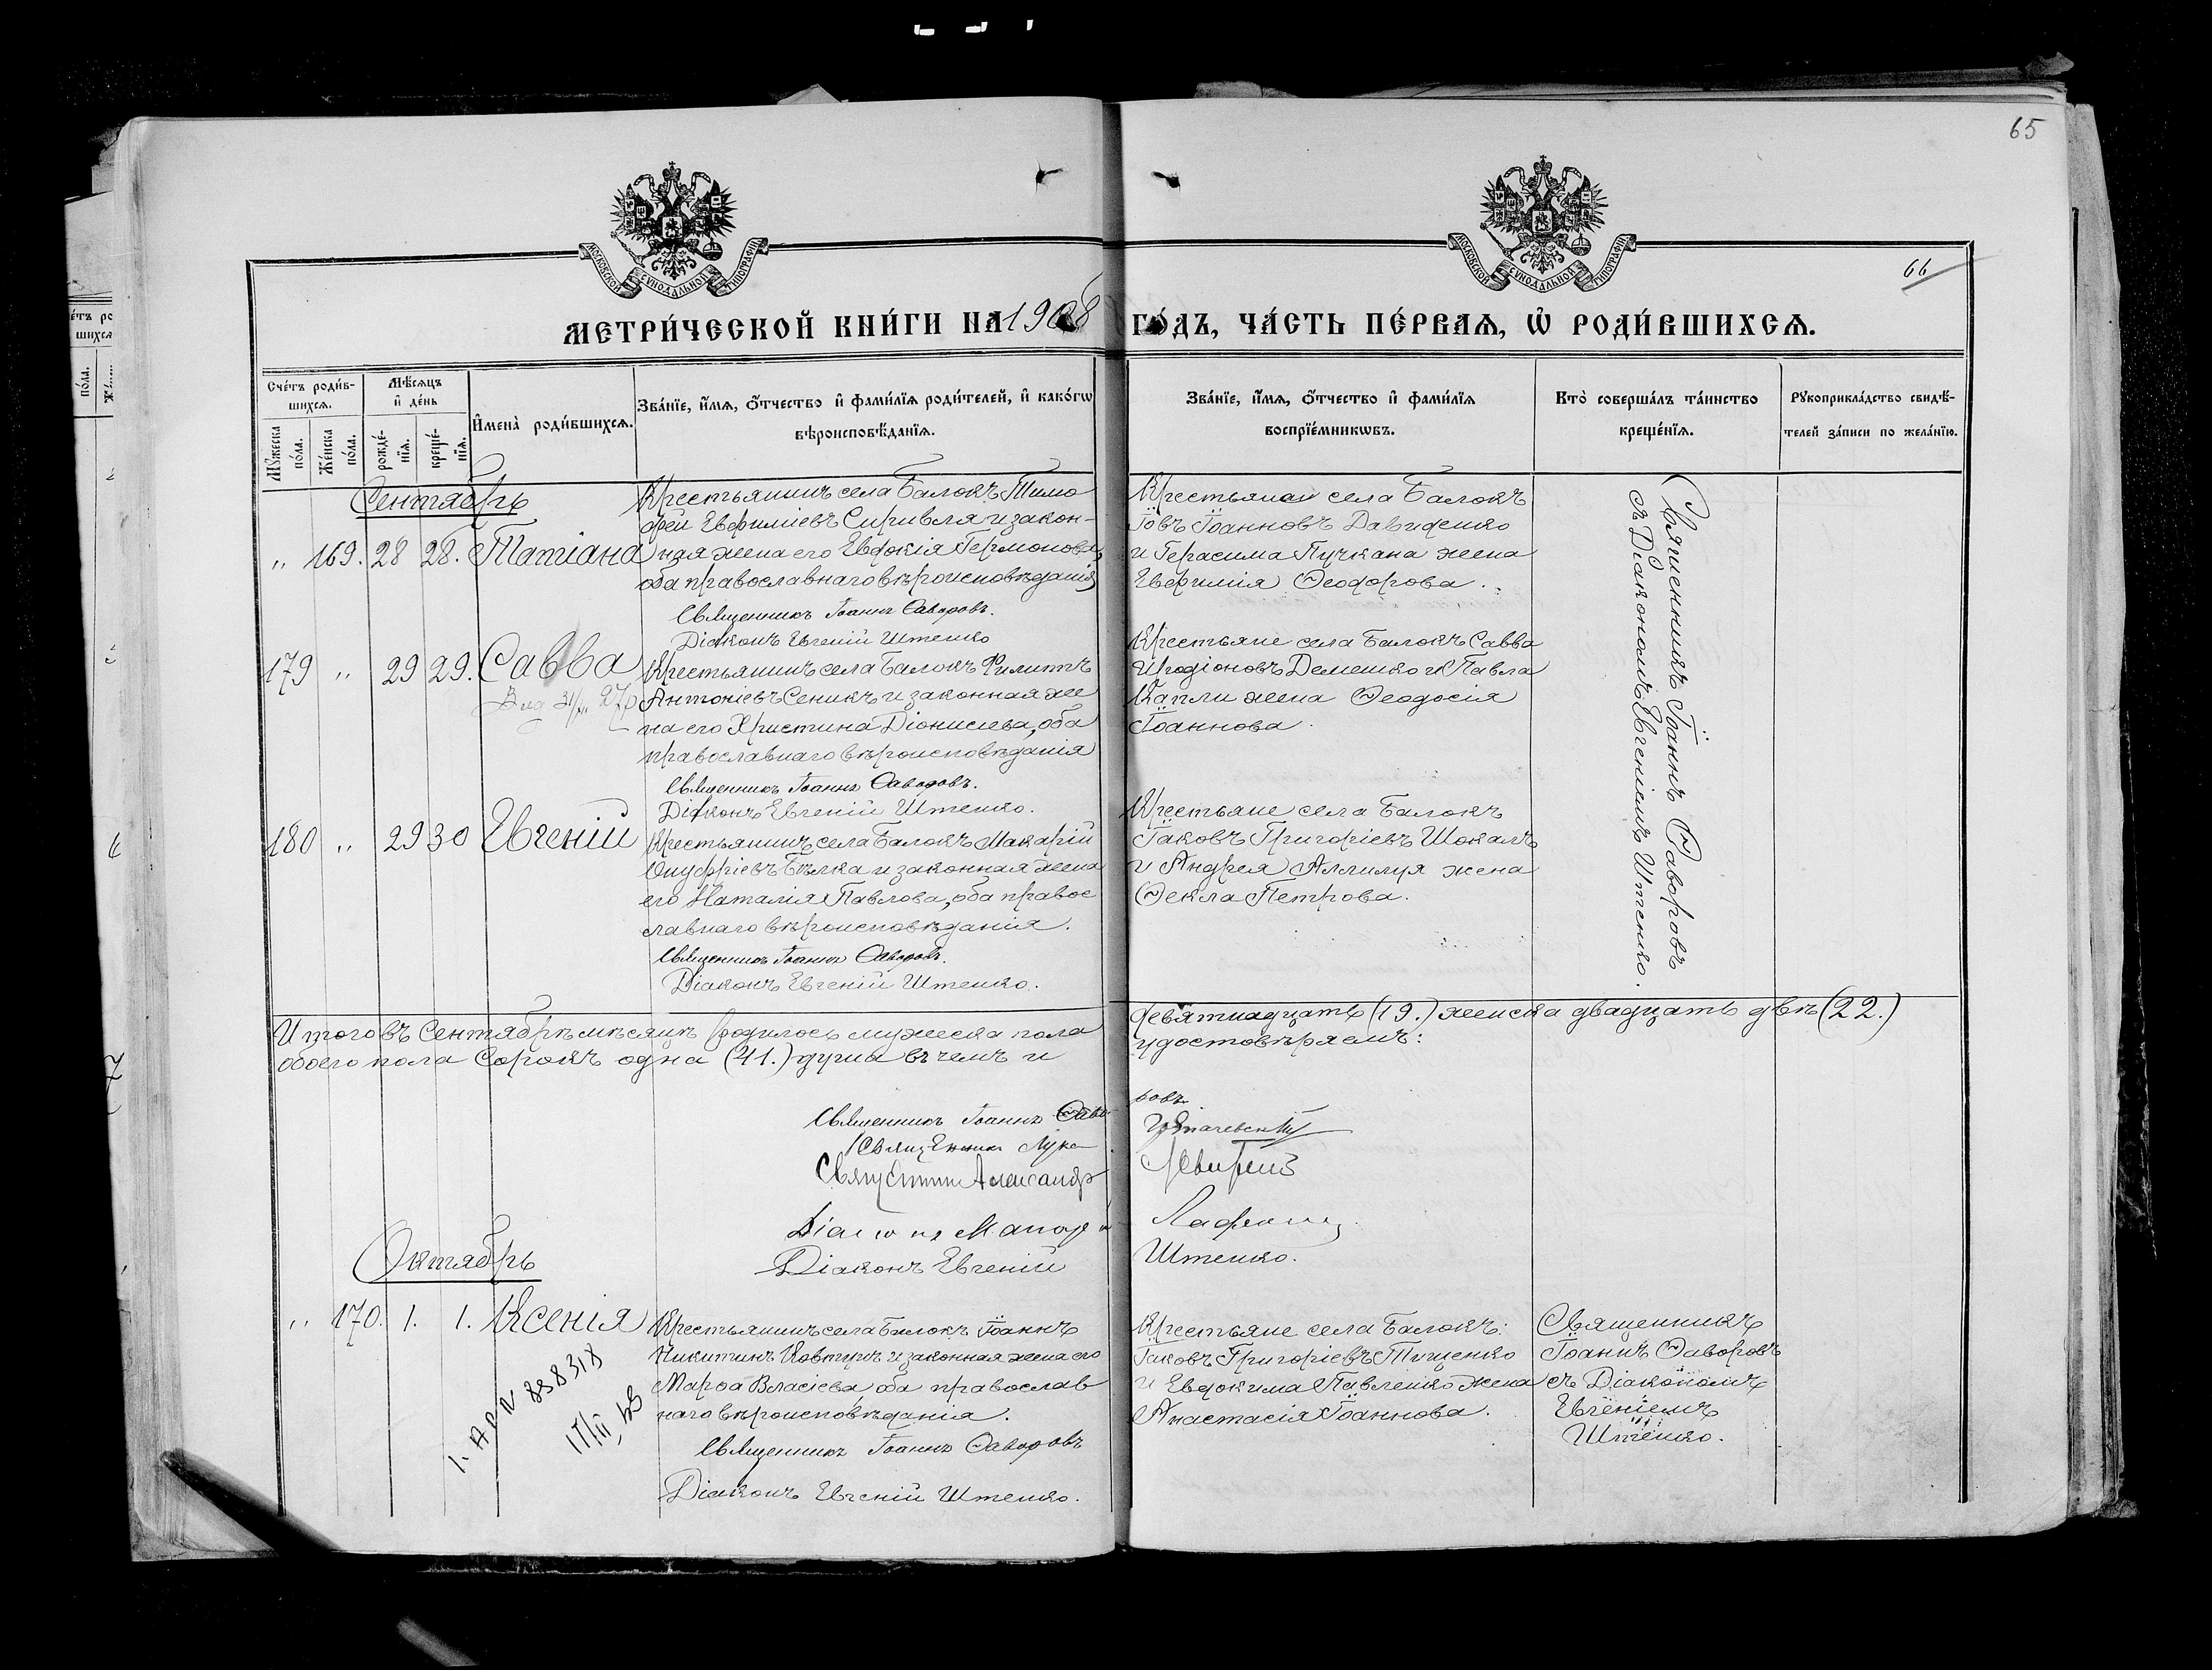 65
66
МОСКОВСКОЙ СѴНОДАЛЬНОЙ ТИПОГРАФІИ
МОСКОВСКОЙ СѴНОДАЛЬНОЙ ТИПОГРАФІИ
МЕТРИ́ЧЕСКОЙ КНИ́ГИ НА 1908 ГО́ДЪ, ЧА́СТЬ ПЕ́РВАѦ, Ѡ҆ РОДИ́ВШИХСѦ.
Сче́тъ роди́в-
шихсѧ.
Мꙋ́жеска по́ла.
Же́нска по́ла.
Мѣ́сѧцъ
и҆ де́нь
рожде́-
нїѧ.
креще́-
нїѧ.
И҆мена̀ роди́вшихсѧ.
Зва́нїе, и҆́мѧ, ѻ҆́тчество и҆ фами́лїѧ роди́телей, и҆ како́гѡ
вѣроисповѣ́данїѧ.
Зва́нїе, и҆́мѧ, ѻ҆́тчество и҆ фами́лїѧ
воспрїе́мникѡвъ.
Кто̀ соверша́лъ та́инство
креще́нїѧ.
Рꙋкоприкла́дство свидѣ́-
телей за́писи по жела́нїю.
Сентябрь
„ 169. 28 28. Татіана
Крестьянинъ села Балокъ Тимо
фей Евфиміевъ Сиривля и закон-
ная жена его Евдокія Гермонова,
оба православнаго вѣроисповѣданія
Священникъ Іоаннъ Ѳаворовъ.
Діаконъ Евгеній Штепко
Крестьяне села Балокъ
Іовъ Іоанновъ Давиденко
и Герасима Пучкана жена
Евфимія Ѳеодорова.
Священникъ Іоаннъ Ѳаворовъ
съ Діакономъ Евгеніемъ Штепко.
179 „ 29 29. Савва
Крестьянинъ села Балокъ Филиппъ
Антоніевъ Сеникъ и законная же
на его Христина Діонисіева, оба
православнаго вѣроисповѣданія
Священникъ Іоаннъ Ѳаворовъ.
Діаконъ Евгеній Штепко.
Крестьяне села Балокъ Савва
Иродіоновъ Демешко и Павла
Капли жена Ѳеодосія
Іоаннова.
180 „ 29 30 Евгеній
Крестьянинъ села Балокъ Макарій
Онуфріевъ Бѣлка и законная жена
его Наталія Павлова, оба правос
лавнаго вѣроисповѣданія.
Священникъ Іоаннъ Ѳаворовъ.
Діаконъ Евгеній Штепко.
Крестьяне села Балокъ
Іаковъ Григоріевъ Шокалъ
и Андрея Аллилуя жена
Ѳекла Петрова.
Итого въ Сентябрѣ мѣсяцѣ родилось мужеска пола девятнадцать (19.) женска двадцать двѣ (22.)
обоего пола Сорокъ одна (41.) душа въ чемъ и удостовѣряемъ:
Священникъ Іоаннъ Ѳаворовъ
Священникъ Лука
Священникъ Александръ
Діаконъ
Діаконъ Евгеній Штепко.
Октябрь
„ 170. 1. 1. Ксенія
Крестьянинъ села Балокъ Іоаннъ
Никитинъ Ковтунъ и законная жена его
Марѳа Власіева, оба православ
наго вѣроисповѣданія.
Священникъ Іоаннъ Ѳаворовъ
Діаконъ Евгеній Штепко.
Крестьяне села Балокъ:
Іаковъ Григоріевъ Тищенко
и Евдокима Павленко жена
Анастасія Іоаннова.
Священникъ
Іоаннъ Ѳаворовъ
съ Діакономъ
Евгеніемъ
Штепко.